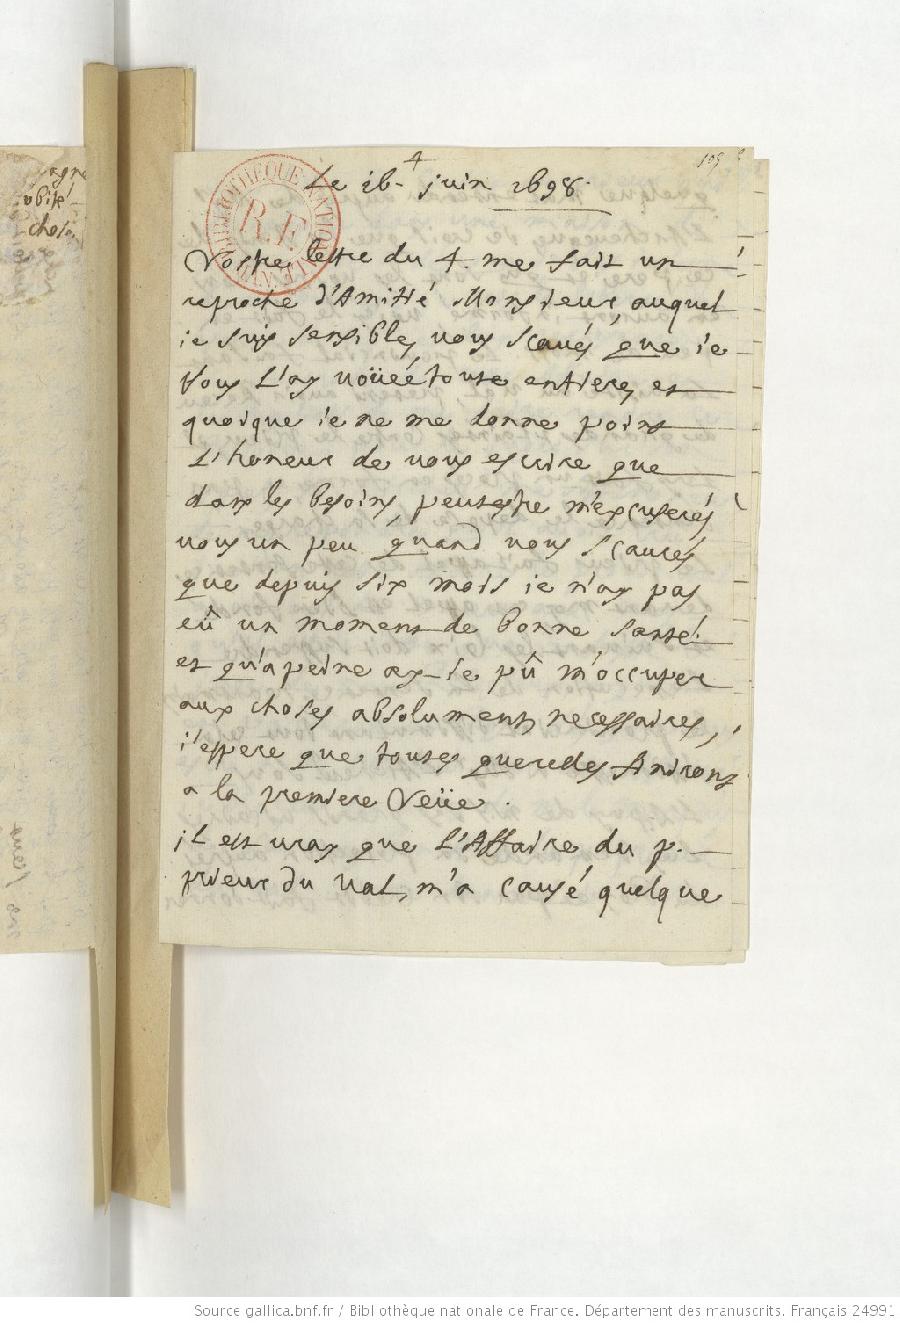 4
109
Le 16 juin 1698.
Vostre lettre du 4. me fait un
reproche d'Amitié Monsieur, auquel
ie suis sensible, vous scaués que ie
vous L'ay voüéé toute entiere, et
quoique ie ne me donne point
L'honeur de vous escrire que
dans les besoins, peutestre m'excuserés
vous un peu quand vous scaurés
que depuis six mois ie n'ay pas
eû un moment de bonne santé.
et qu'a peine ay-ie pû m'occuper
aux choses absolument necessaires,
i'espere que toutes
a la premiere Veüe.
il est vray que L'Affaire du p.
prieur du val, m'a causé quelque
agne
obité
chose
BIBLIOTHEQUE NATIONALE
R.F.
Source gallica.bnf.fr / Bibliothèque nationale de France. Département des manuscrits. Français 24991